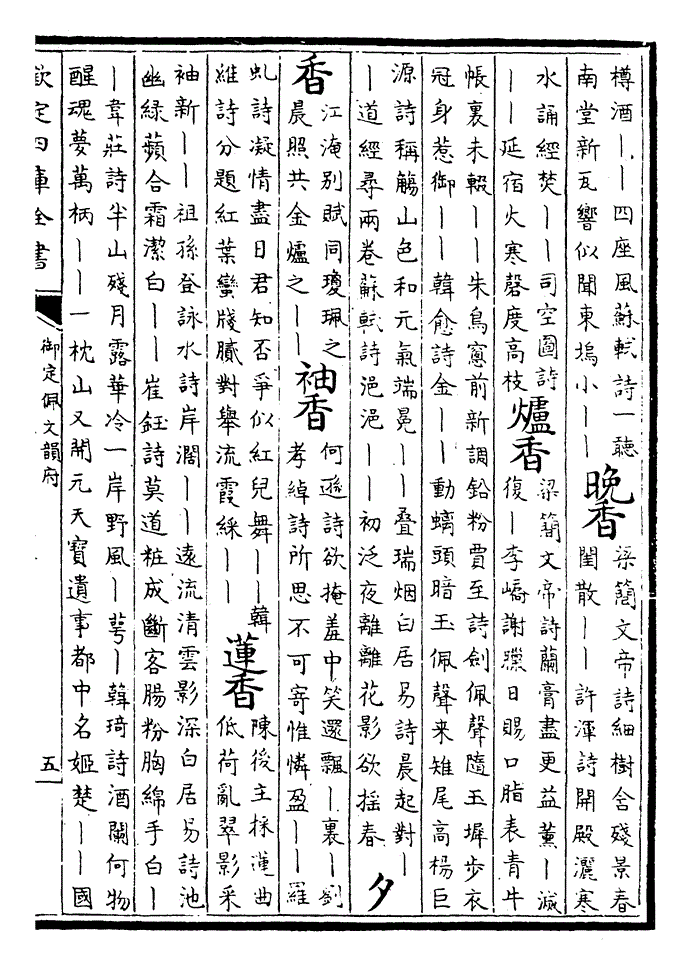 樽酒｜｜四座風蘇軾詩一聽
南堂新瓦響似聞東塢小｜｜
晚香
梁簡文帝詩細樹含殘景春
閨散｜｜許渾詩開殿灑寒
水誦經焚｜｜司空圖詩
｜｜延宿火寒磬度高枝
爐香
梁簡文帝詩蘭膏盡更益薰｜滅
復｜李嶠謝臘日賜口脂表青牛
帳裏未輟｜｜朱鳥窻前新調鉛粉賈至詩劍佩聲隨玉墀步衣
冠身惹御｜｜韓愈詩金｜｜動螭頭暗玉佩聲来雉尾高楊巨
源詩稱觴山色和元氣端冕｜｜疊瑞烟白居易詩晨起對｜
｜道經尋兩卷蘇軾詩浥浥｜｜初泛夜離離花影欲揺春
夕
香
江淹別賦同瓊珮之
晨照共金爐之｜｜
袖香
何遜詩欲掩羞中笑還飄｜裏｜劉
孝綽詩所思不可寄惟憐盈｜｜羅
虬詩凝情盡日君知否爭似紅兒舞｜｜韓
維詩分題紅葉蠻牋膩對舉流霞綵｜｜
蓮香
陳後主採蓮曲
低荷亂翠影采
袖新｜｜祖孫登詠水詩岸濶｜｜遠流清雲影深白居易詩池
幽綠蘋合霜潔白｜｜崔鈺詩莫道粧成斷客腸粉胸綿手白｜
｜韋莊詩半山殘月露華冷一岸野風｜萼｜韓琦詩酒闌何物
醒魂夢萬柄｜｜一枕山又開元天寶遺事都中名姬楚｜｜國
欽定四庫全書
御定佩文韻府
五